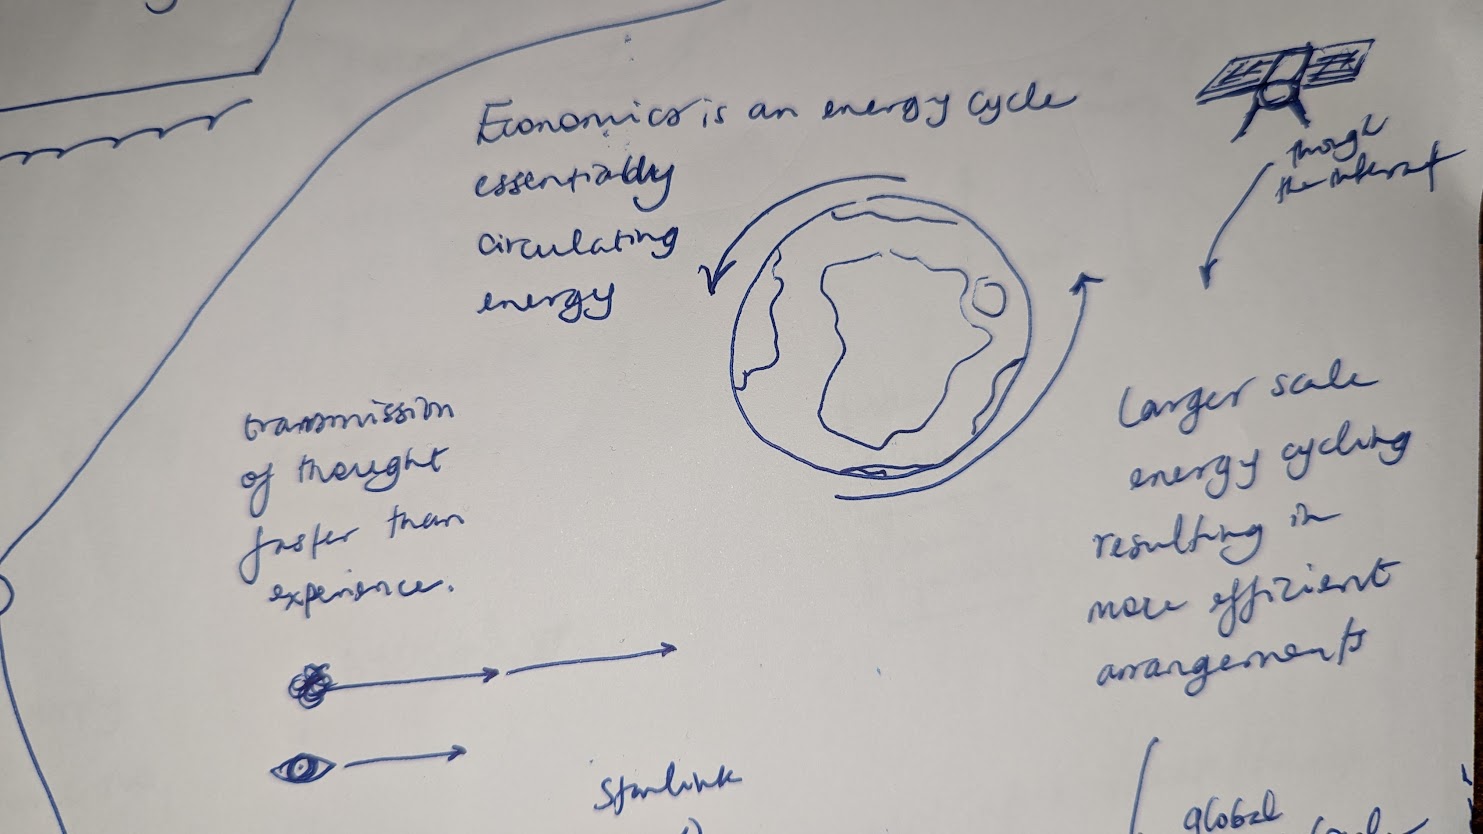 Economics is an energy cycle
essentially
circulating
energy
though
the internet
transmission
of thought
faster than
experience.
Larger scale
energy cycling
resulting in
more efficient
arrangements
Starlink
global